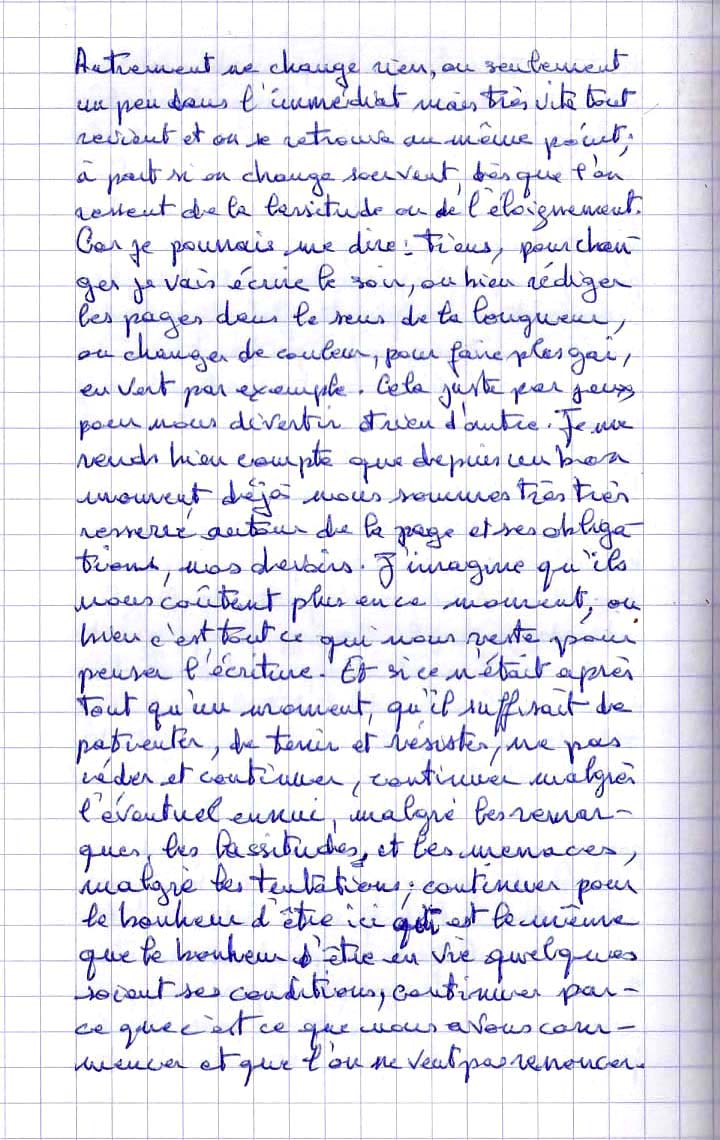 Autrement ne change rien, ou seulement
un peu dans l'immédiat mais très vite tout
revient et on se retrouve au même point;
à part si on change souvent, dès que l'on
ressent de la lassitude ou de l'éloignement.
Car je pourrais me dire : tiens, pour chan-
ger je vais écrire le soir, ou bien rédiger
les pages dans le sens de la longueur,
ou changer de couleur, pour faire plus gai,
en vert par exemple. Cela juste par jeux
pour nous divertir et rien d'autre. Je me
rends bien compte que depuis un bon
moment déjà nous sommes très très
resserré autour de la page et ses obliga-
tions, nos devoirs. J'imagine qu'ils
nous coûtent plus en ce moment, ou
bien c'est tout ce qui nous reste pour
penser l'écriture. Et si ce n'était après
tout qu'un moment, qu'il suffisait de
patienter, de tenir et résister, ne pas
céder et continuer, continuer malgré
l'éventuel ennui, malgré les remar-
ques, les lassitudes, et les menaces,
malgré les tentations; continuer pour
le bonheur d'être ici qui est le même
que le bonheur d'être en vie quelques
soient ses conditions, continuer par-
ce que c'est ce que nous avons com-
mencer et que l'on ne veut pas renoncer.